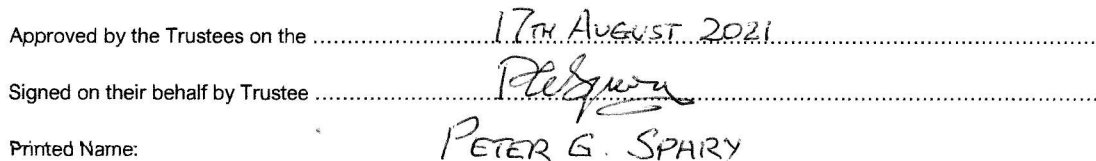 Approved by the Trustees on the ........ 17TH AUGUST 2021
Signed on their behalf by Trustee ........
Printed Name: PETER G. SPARY